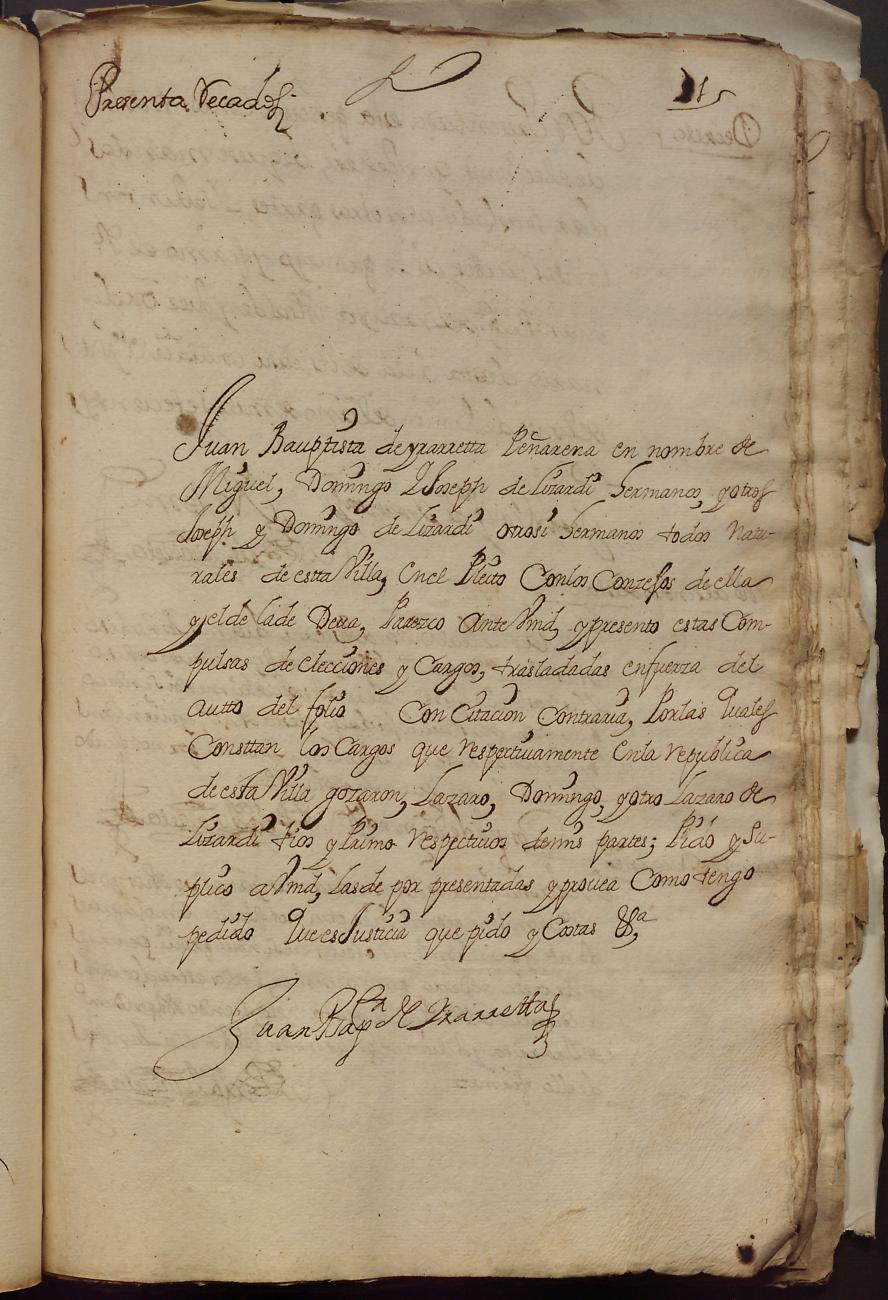 Presenta Recados
Juan Bauptista de yrarretta Peñarena en nombre de
Miguel, Domingo Y Joseph de Lizardi hermanos, y otros
Joseph y Domingo de Lizardi otrosi hermanos todos natu-
rales de estta Villa, en el Pleito Con los Conzejos de ella
y el de la de Deva, Parezco Ante Vmd, y presento estas Com-
pulsas de elecciones y Cargos, trasladadas en fuerza del
autto del folio Con Citacion Contraria, Por las quales
Consttan los Cargos que respectivamente en la republica
de esta Villa gozaron, Lazaro, Domingo, y otro Lazaro de
Lizardi tios y Primo respectivos de mis partes; Pido y Su-
plico a Vmd, las de por presentadas y provea Como tengo
pedido que es Justicia que pido y Costas &a
Juan Bapta de Yrarretta